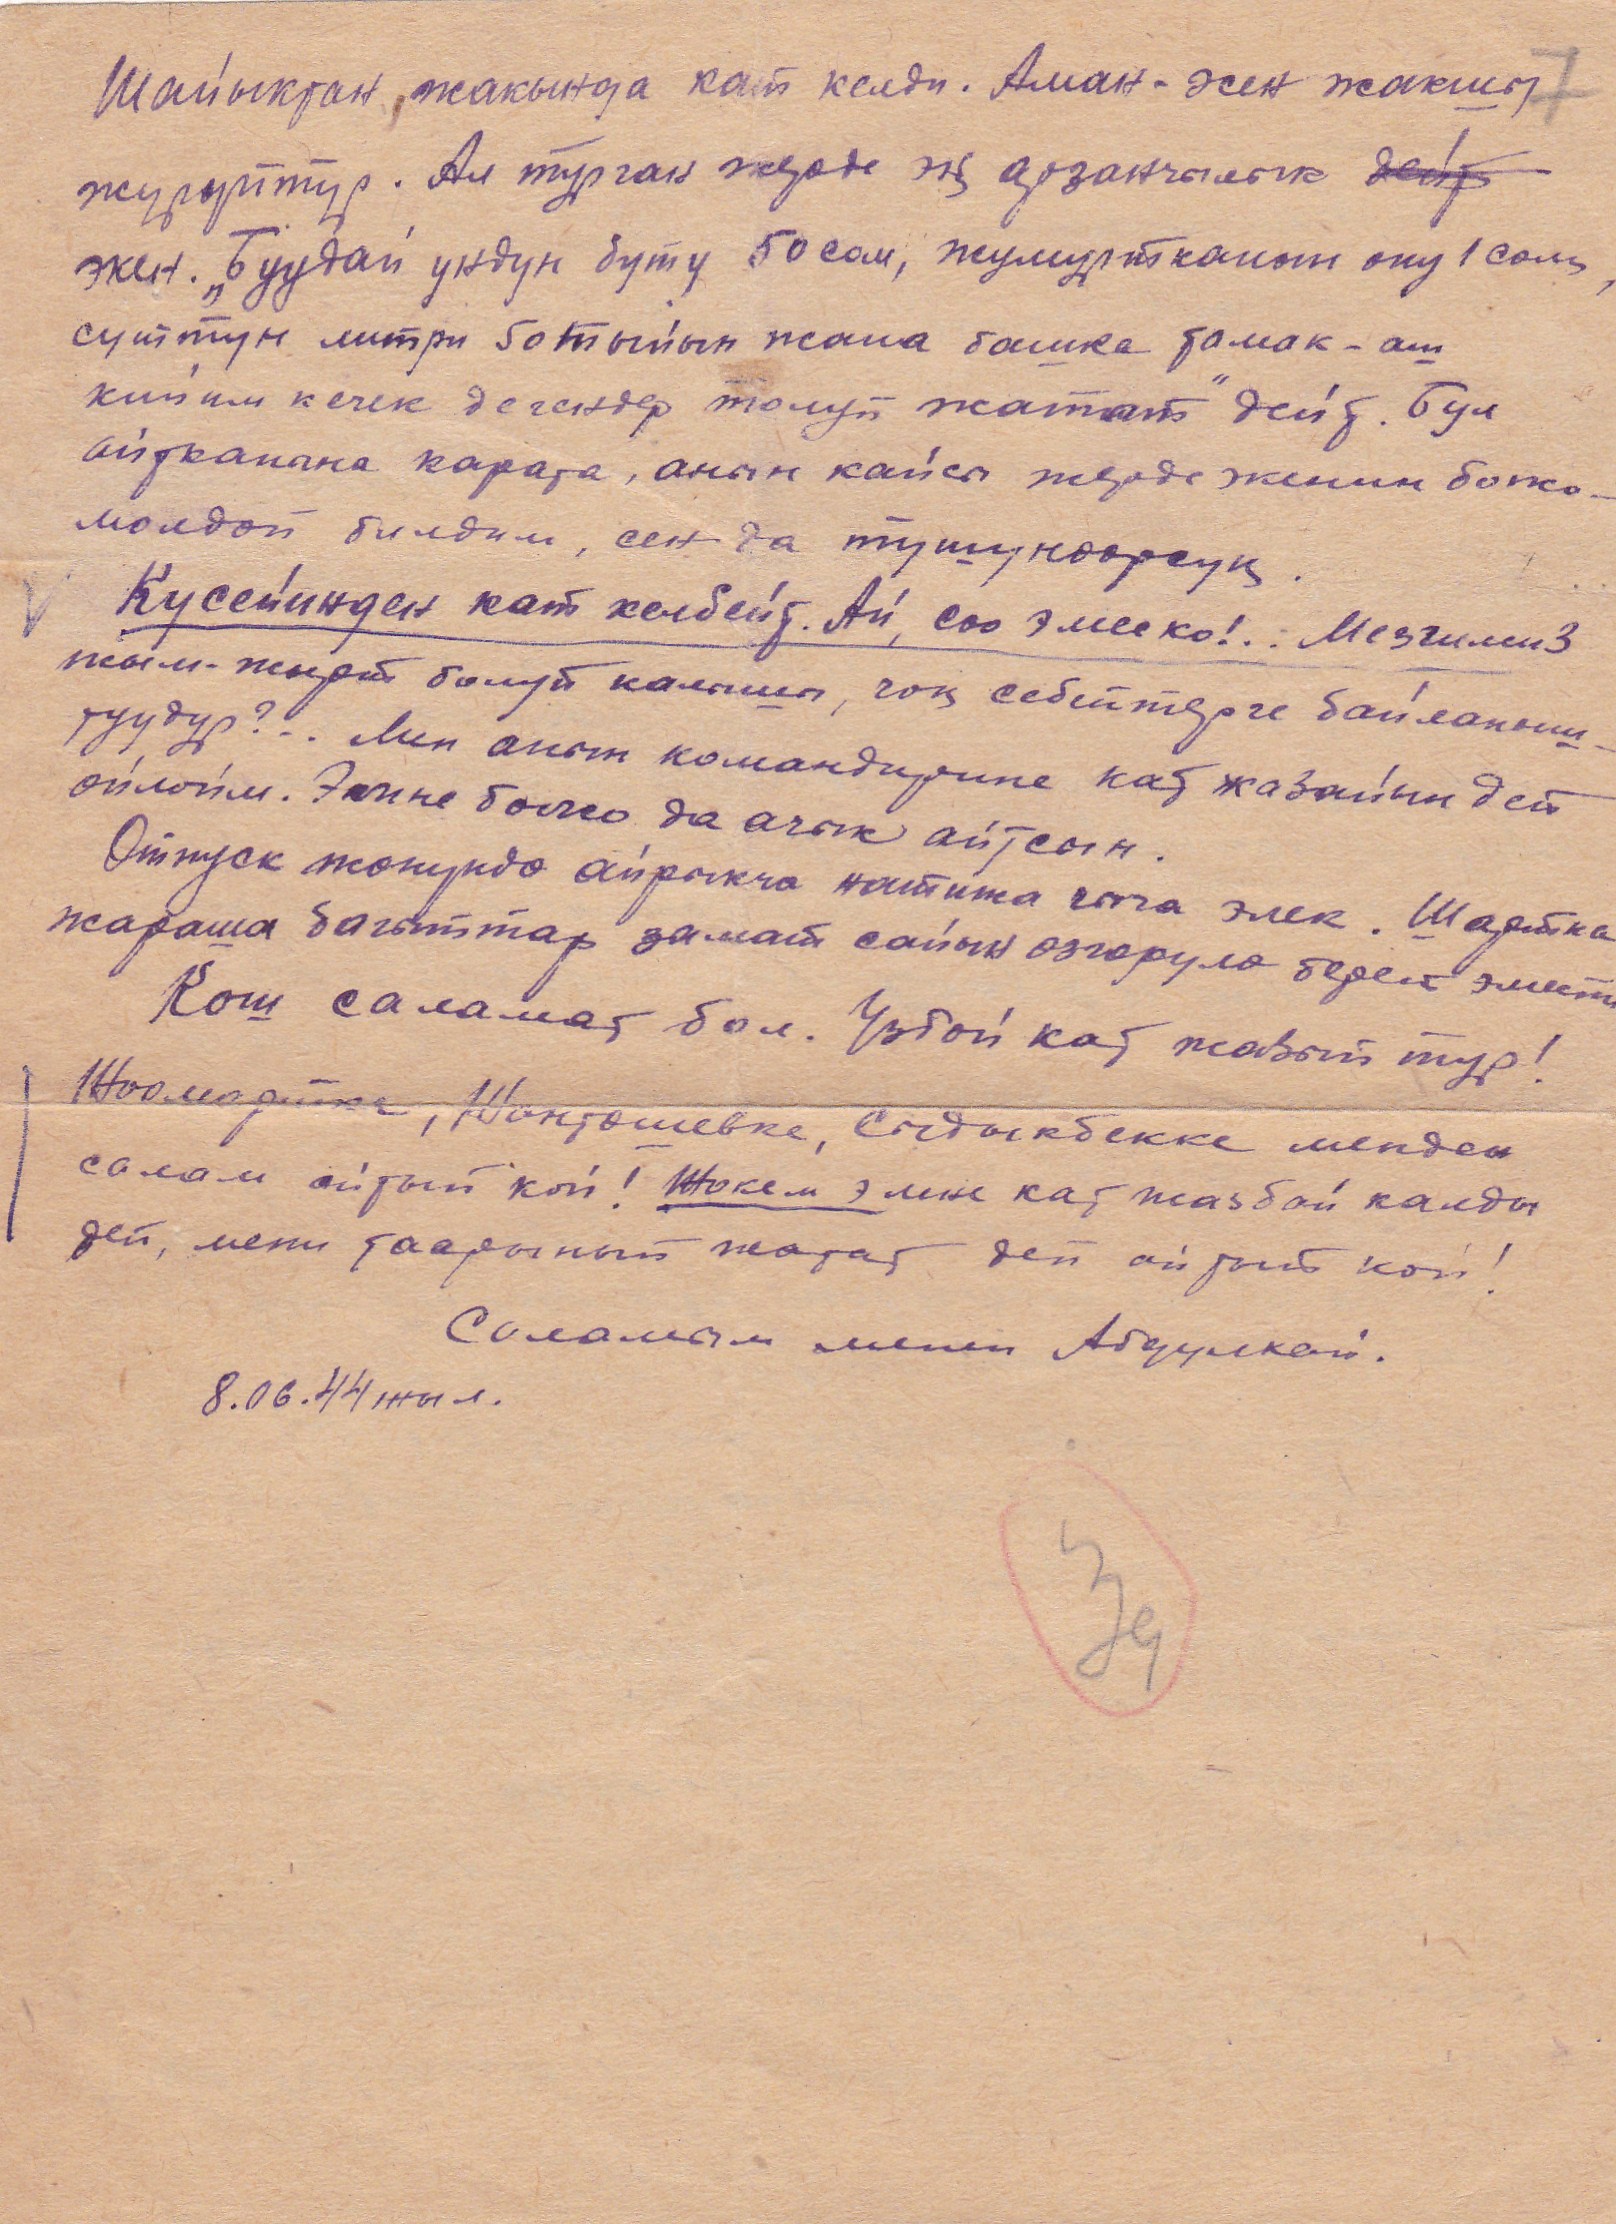 Шайыктан жакында кат келди. Аман-эсен жакшы 7
журуптур. Ал турган жерде эң арзанчылык дейт
экен. „Буудай ундун буту 50 сом, жумуртканын ону 1 сом,
суттун литри 50 тыйын жана башка тамак-аш
кийим кечек дегендер толуп жатат" дейт. Бул
айтканына карата, анын кайсы жерде экенин божо-
молдоп билдим, сен да тушунөөрсуң.
Кусейинден кат келбейт. Ай, соо эмеско!.. Мезгилиз
жым-жырт болуп калышы, чоң себептерге байланыш-
туудур?.. Мен анын командирине кат жазайын деп
ойлойм. Эмне болсо да ачык айтсын.
Отпуск жонундо айрыкча натыйжа чыга элек. Шартка
жараша багыттар замат сайын озгоруло берет эмеспи
Кош саламат бол. Узбой кат жазып тур!
Жоомартка, Шонтошевке, Сыдыкбекке менден
салам айтып кой! Жокем эмне кат жазбай калды
деп, мени таарынып жатат деп айтып кой!
Саламым менен Абдулкай.
8.06.44 жыл.